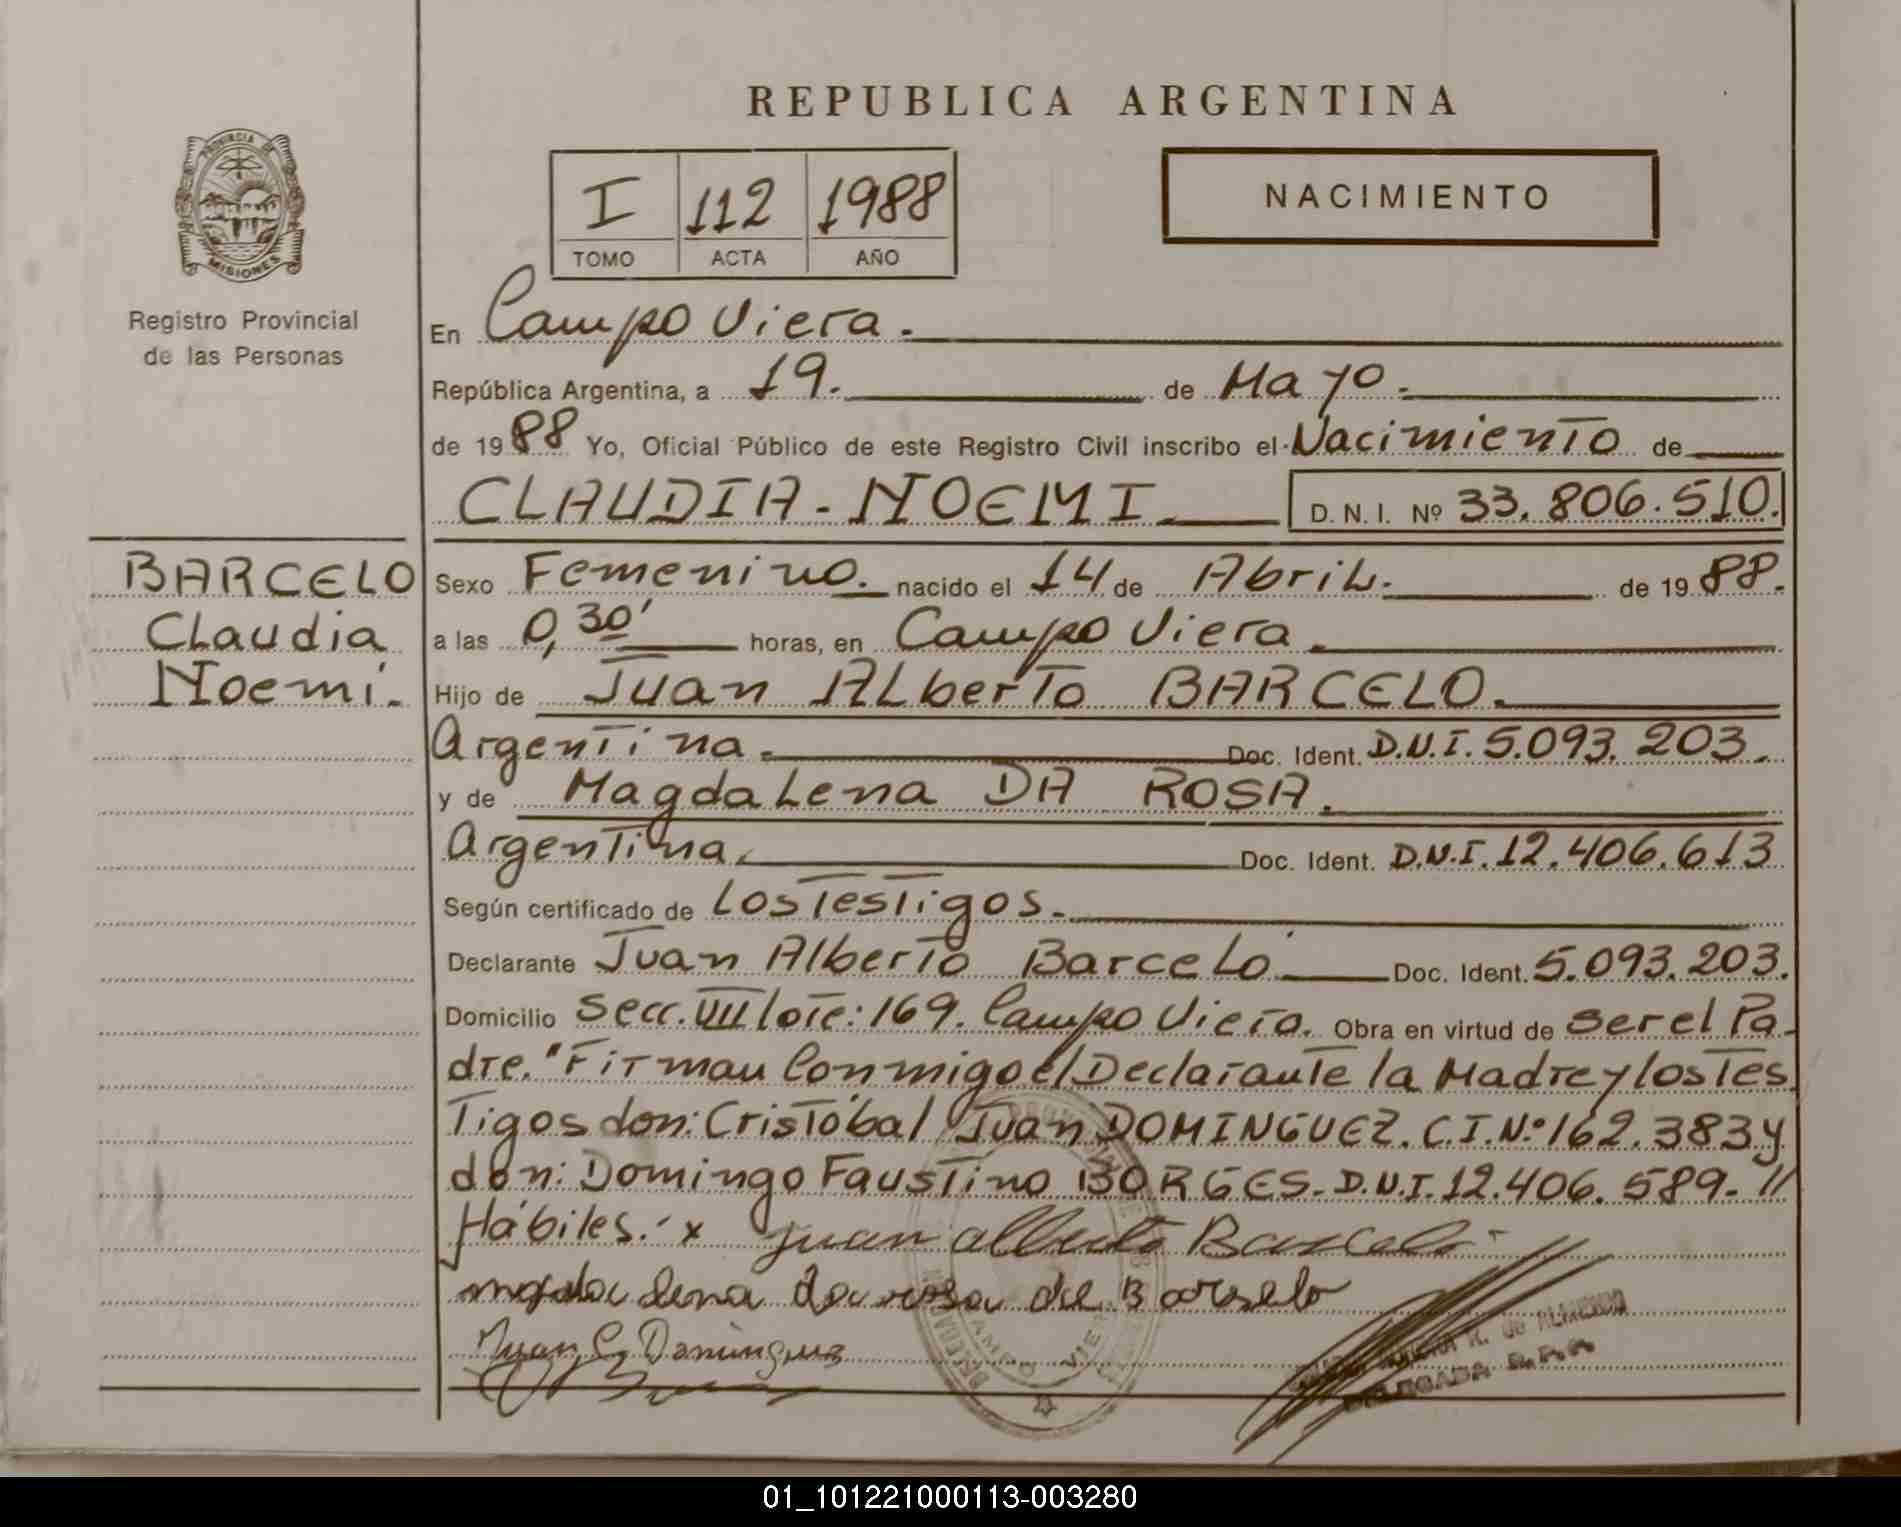 REPUBLICA ARGENTINA
PROVINCIA DE
MISIONES
Registro Provincial
de las Personas
I 112 1988
TOMO ACTA AÑO
NACIMIENTO
En Campo Viera.
República Argentina, a 19. de Mayo.
de 1988 Yo, Oficial Público de este Registro Civil inscribo el Nacimiento de
CLAUDIA - NOEMI D. N. I. Nº 33.806.510.
BARCELO
Claudia
Noemí.
Sexo Femenino. nacido el 14 de Abril. de 1988.
a las 0,30' horas, en Campo Viera.
Hijo de Juan Alberto BARCELO.
Argentina. Doc. Ident. D.N.I. 5.093.203.
y de Magdalena DA ROSA.
Argentina. Doc. Ident. D.N.I. 12.406.613
Según certificado de los Testigos.
Declarante Juan Alberto Barceló Doc. Ident. 5.093.203.
Domicilio Secc. VIII lote: 169. Campo Viera. Obra en virtud de ser el Pa-
dre. "Firman Conmigo el Declarante la Madre y los Tes
Tigos don: Cristóbal Juan DOMINGUEZ. C.I.Nº 162.383 y
don: Domingo Faustino BORGES. D.N.I. 12.406.589. //
Hábiles.´ x Juan Alberto Barcelo
magdalena da rosa de Barselo
Juan C. Dominguez
R. de ALMEIDA
DELEGADA R.P.P.
01_101221000113-003280